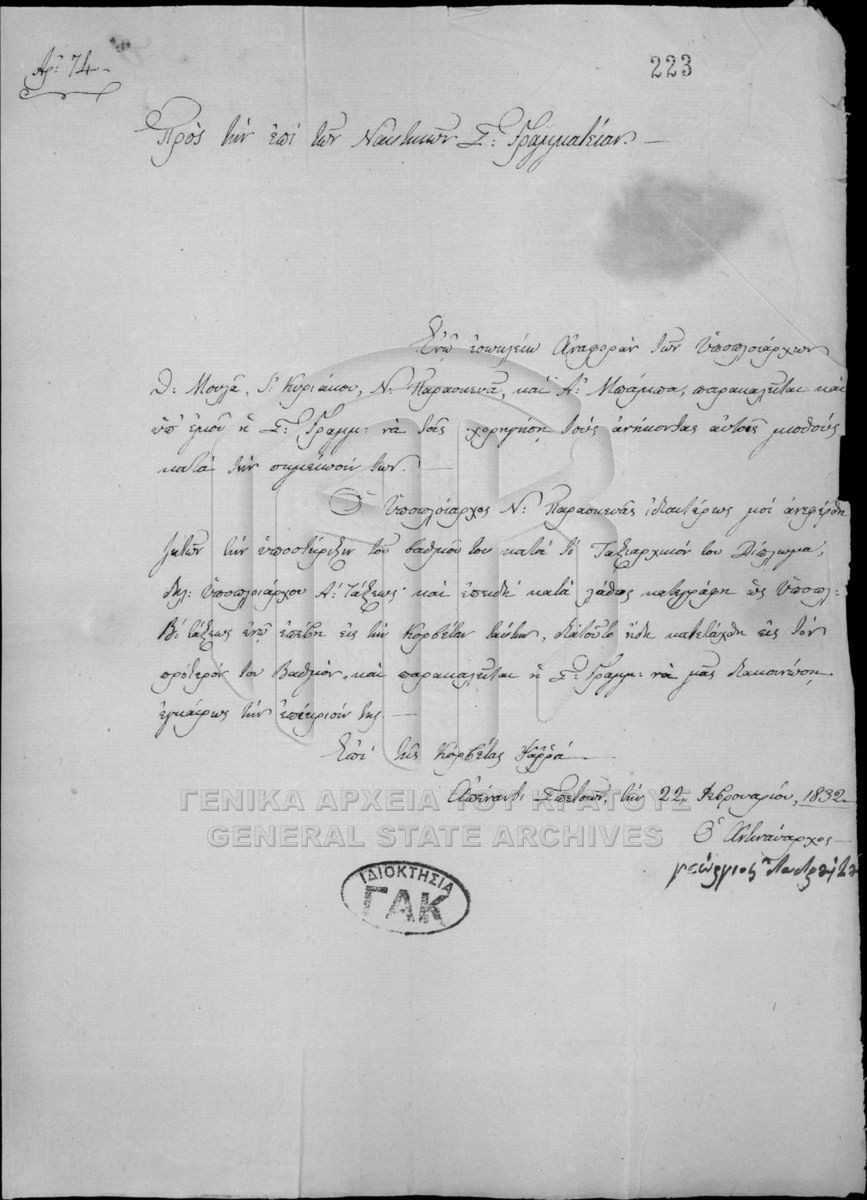 Ἀρ: 74
223
Πρὸς τὴν ἐπὶ τῶν Ναυτικῶν Σ: Γραμματείαν.
Ἐνῷ ἐσωκλείω Ἀναφορὰν τῶν Ὑποπλοιάρχων
Δ: Μουλᾶ, Γ: Κυριάκου, Ν: Παρασκευᾶ, καὶ Α: Μπάμπα, παρακαλεῖται καὶ
ὑπ' ἐμοῦ ἡ Σ: Γραμμ: νὰ τοῖς χορηγήσῃ τοὺς ἀνήκοντας αὐτοῖς μισθοὺς
κατὰ τὴν σημείωσίν των.
Ὁ Ὑποπλοίαρχος Ν: Παρασκευᾶς ἰδιαιτέρως μοὶ ἀνεφέρθη
ζητῶν τὴν ὑποστήριξιν τοῦ βαθμοῦ του κατὰ τὸ Ταξιαρχικόν του Δίπλωμα,
δηλ: Ὑποπλοιάρχου Α: τάξεως· καὶ ἐπειδὴ κατὰ λάθος κατεγράφη ὡς Ὑποπλ:
Β: τάξεως ἐνῷ ἐπέβη εἰς τὴν Κορβέταν ταύτην, διὰ τοῦτο ἤδη κατετάχθη εἰς τὸν
πρότερόν του Βαθμὸν, καὶ παρακαλεῖται ἡ Σ: Γραμμ: νὰ μᾶς διακοινώσῃ
ἐγκαίρως τὴν ἐπίκρισίν της.
Ἐπὶ τῆς Κορβέτας Ψαρρά
Ἀπέναντι Σπετσῶν, τὴν 22 Φεβρουαρίου, 1832
Ὁ Ἀντιναύαρχος
γεώργιος
ΓΕΝΙΚΑ ΑΡΧΕΙΑ ΤΟΥ ΚΡΑΤΟΥΣ
GENERAL STATE ARCHIVES
ΙΔΙΟΚΤΗΣΙΑ
ΓΑΚ